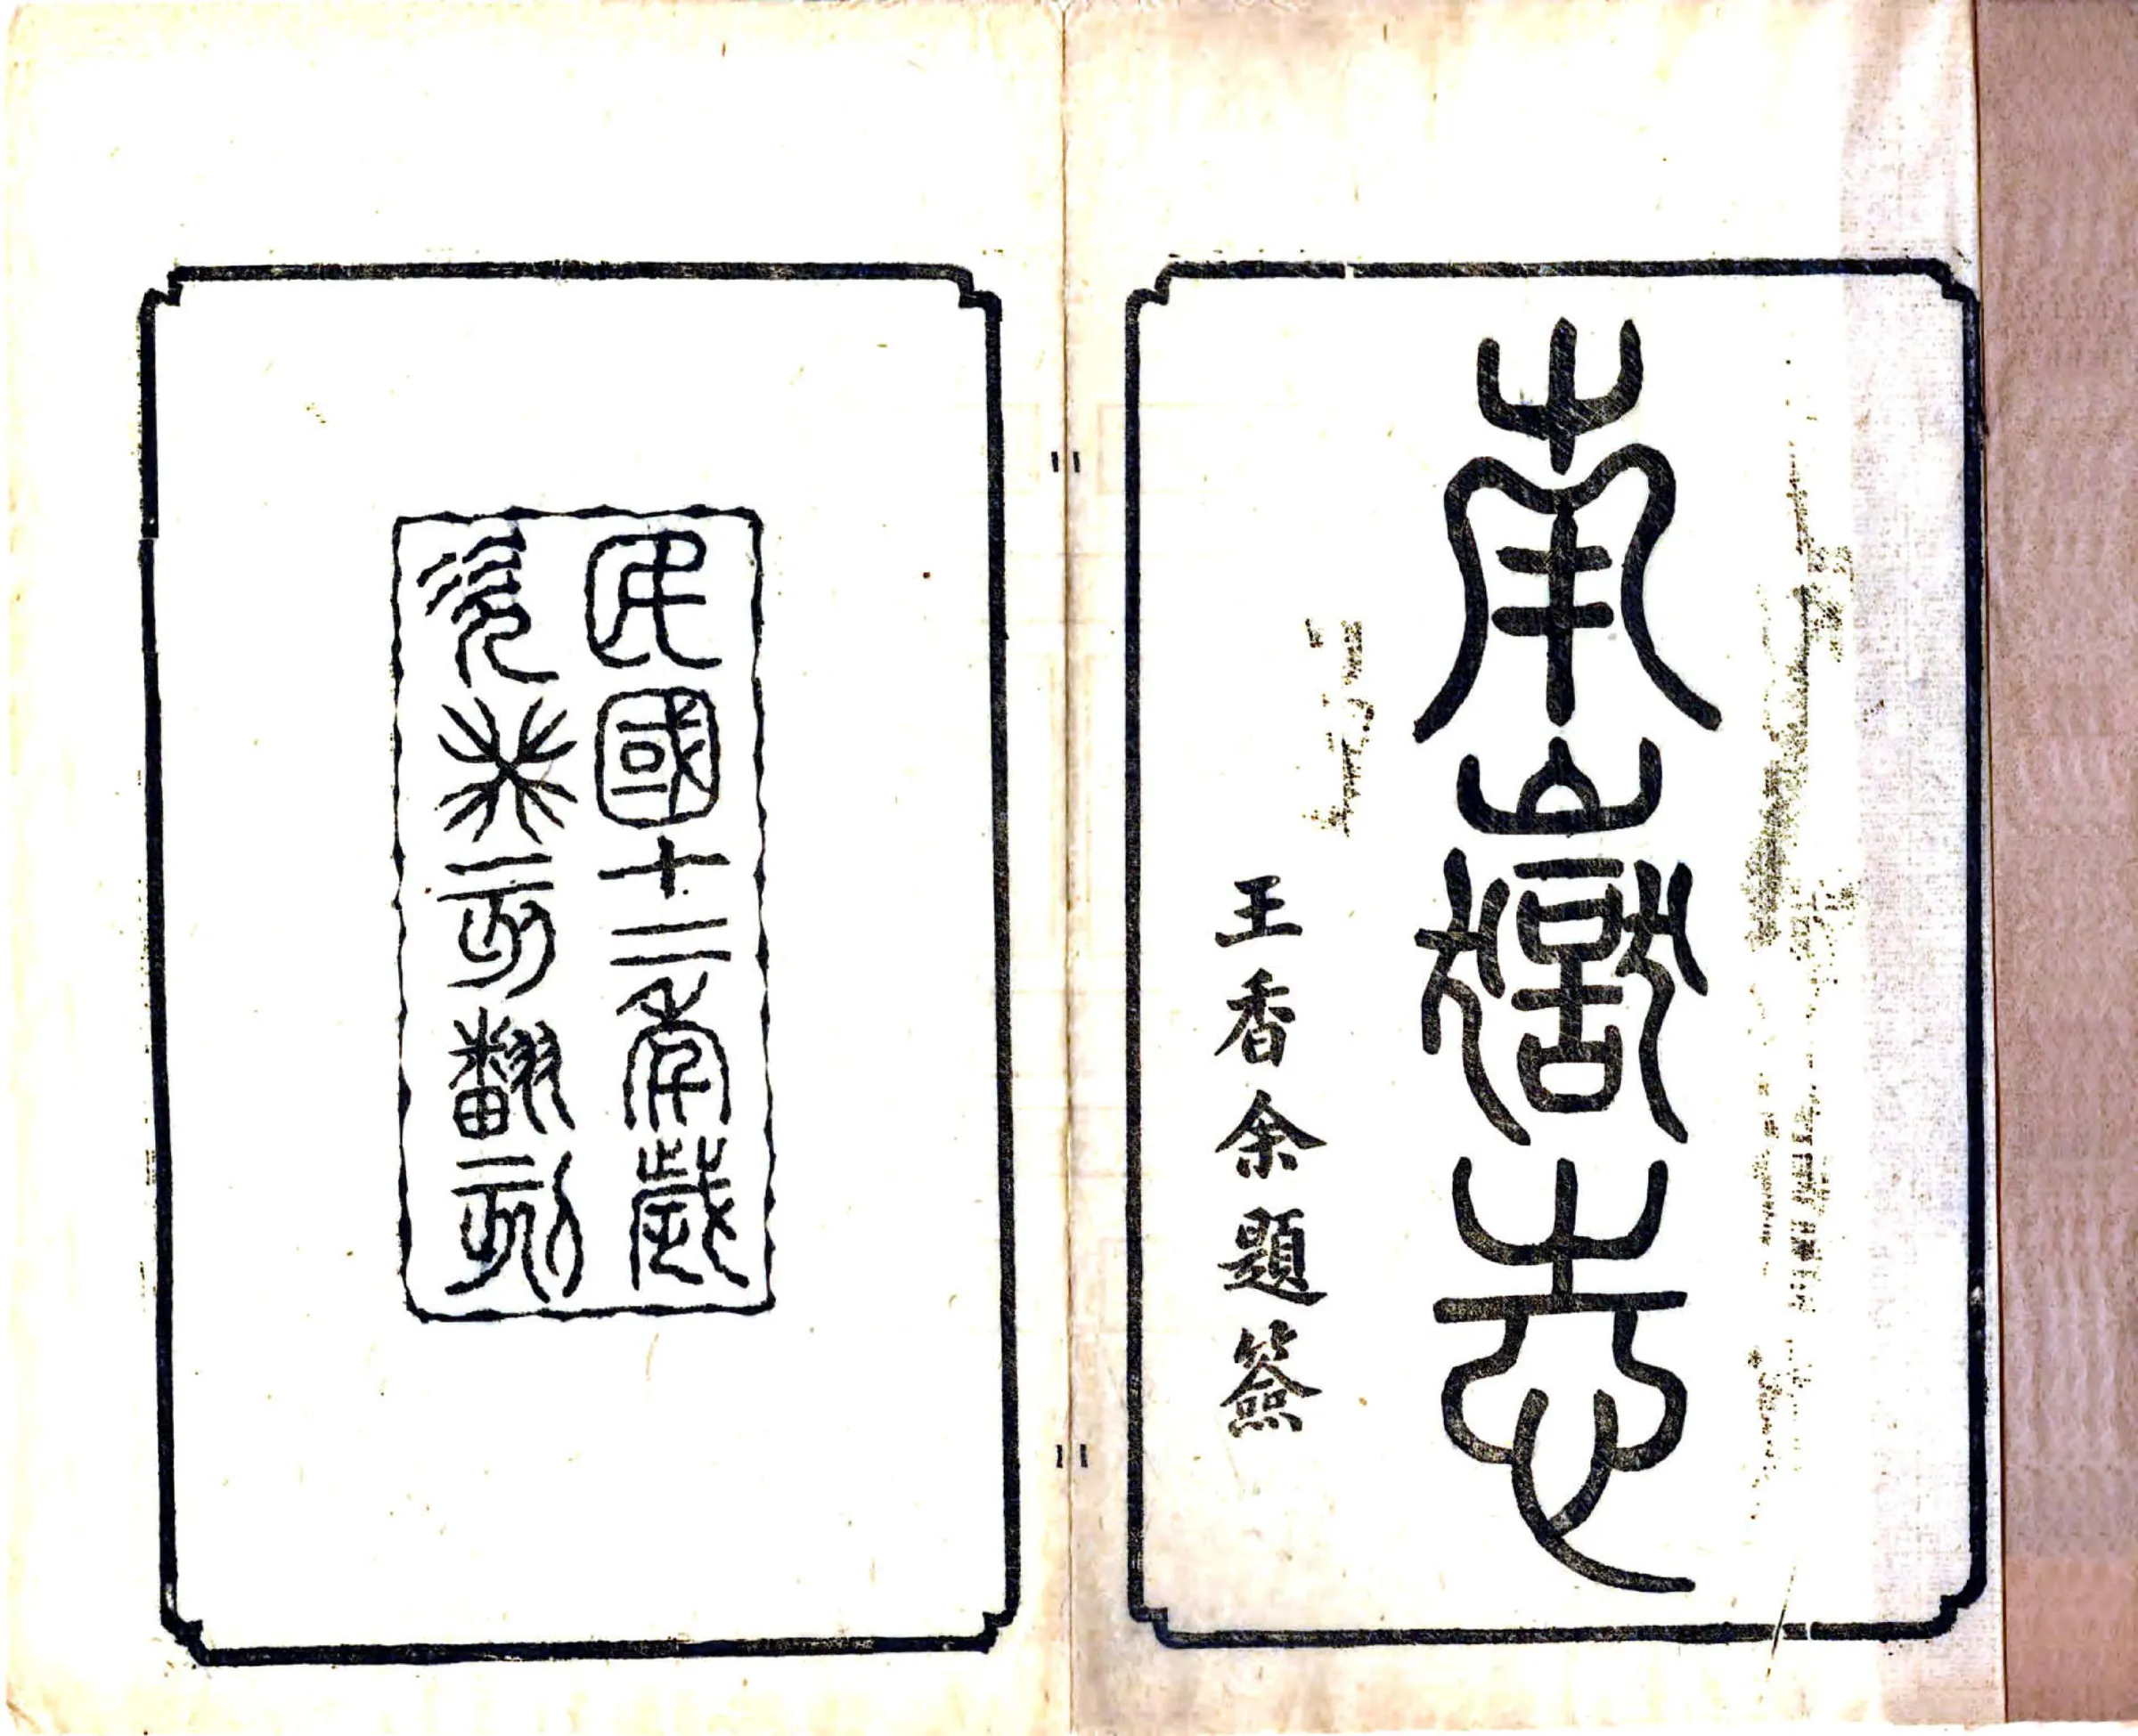 南嶽志
王香余題簽
民國十二年歲
癸亥翻刻